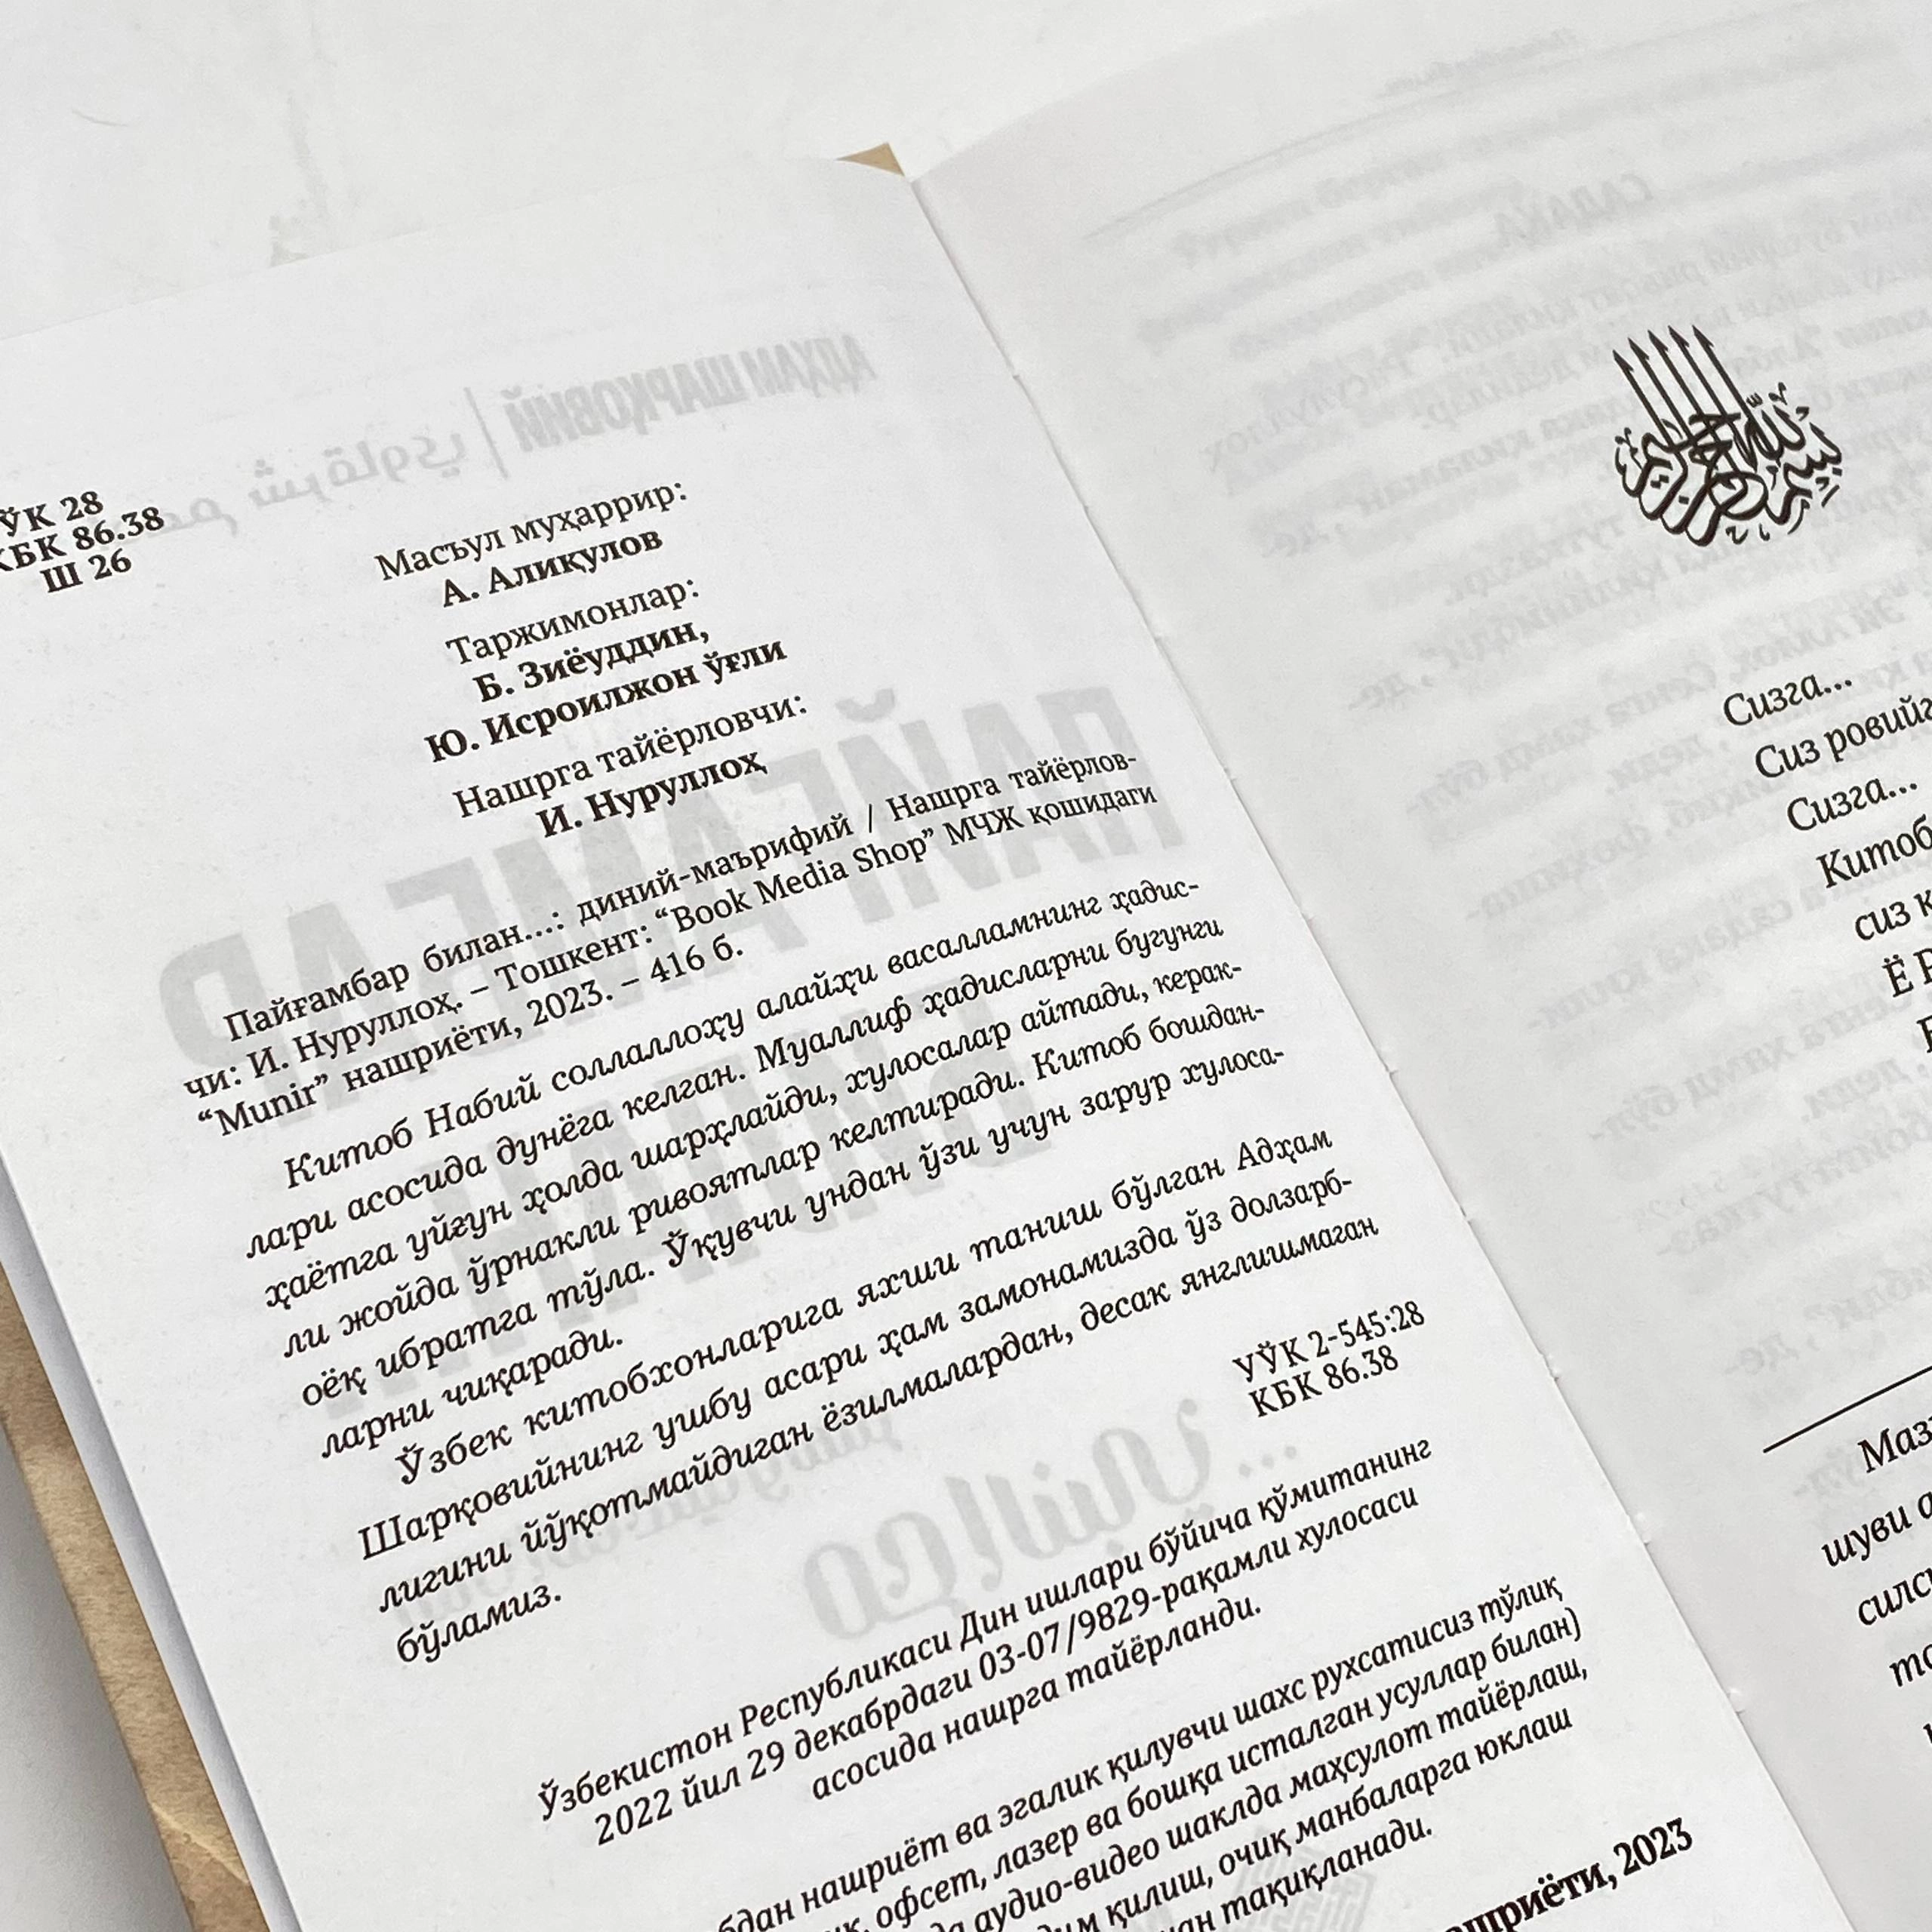 ЎК 28
КБК 86.38
Ш 26
Масъул муҳаррир:
А. Алиқулов
Таржимонлар:
Б. Зиёуддин,
Ю. Исроилжон ўғли
Нашрга тайёрловчи:
И. Нуруллоҳ
Пайғамбар билан...: диний-маърифий / Нашрга тайёрлов-
чи: И. Нуруллоҳ. – Тошкент: “Book Media Shop” МЧЖ қошидаги
“Munir” нашриёти, 2023. – 416 б.
Китоб Набий соллаллоҳу алайҳи васалламнинг ҳадис-
лари асосида дунёга келган. Муаллиф ҳадисларни бугунги
ҳаётга уйғун ҳолда шарҳлайди, хулосалар айтади, керак-
ли жойда ўрнакли ривоятлар келтиради. Китоб бошдан-
оёқ ибратга тўла. Ўқувчи ундан ўзи учун зарур хулоса-
ларни чиқаради.
Ўзбек китобхонларига яхши таниш бўлган Адҳам
Шарқовийнинг ушбу асари ҳам замонамизда ўз долзарб-
лигини йўқотмайдиган ёзилмалардан, десак янглишмаган
бўламиз.
УЎК 2-545:28
КБК 86.38
Ўзбекистон Республикаси Дин ишлари бўйича қўмитанинг
2022 йил 29 декабрдаги 03-07/9829-рақамли хулосаси
асосида нашрга тайёрланди.
нашриёт ва эгалик қилувчи шахс рухсатисиз тўлиқ
офсет, лазер ва бошқа исталган усуллар билан)
аудио-видео шаклда маҳсулот тайёрлаш,
қилиш, очиқ манбаларга юклаш
тақиқланади.
2023
Сизга...
Сиз
Сизга...
Китоб
сиз
Ё
Маз
шуви